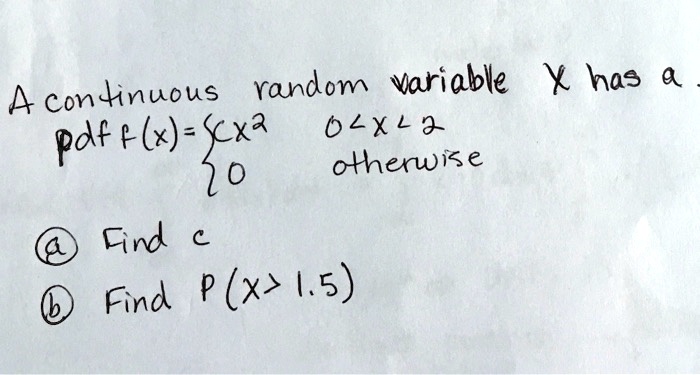 A continuous random variable X has a
pdf f(x) = { cx² 0<x<2
{ 0 otherwise
ⓐ Find c
ⓑ Find P(x> 1.5)